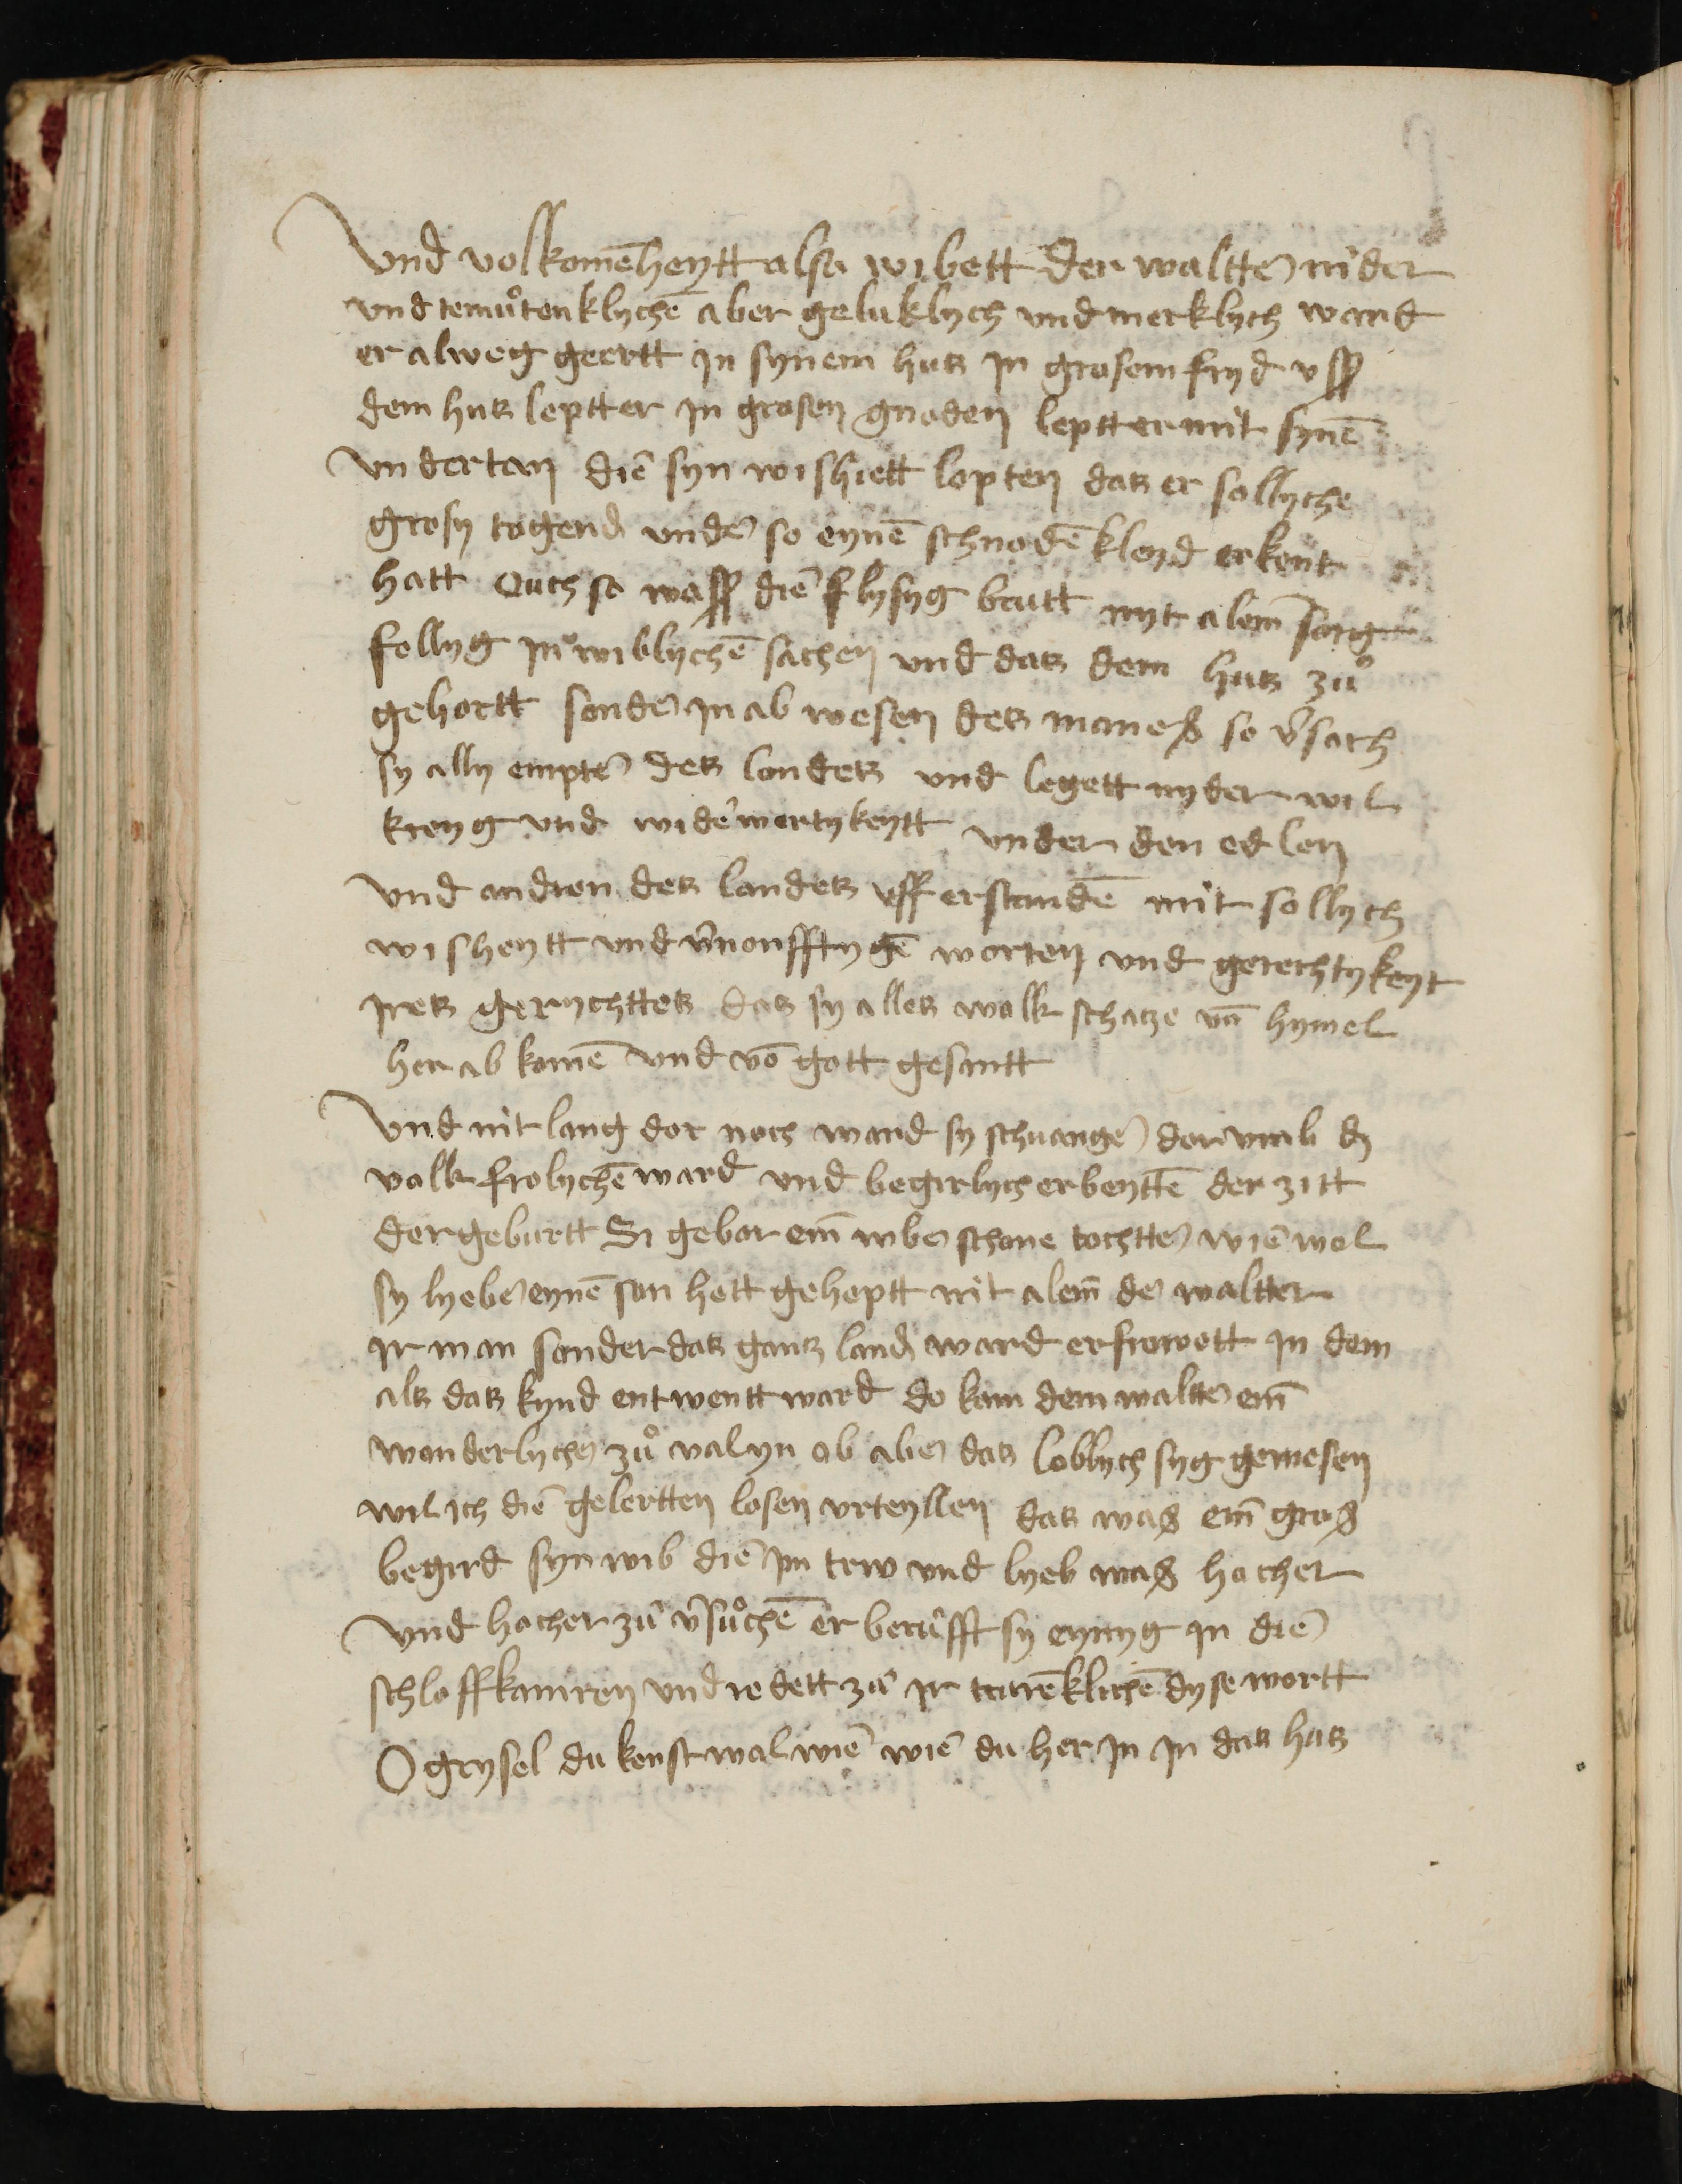 Vnd volkomēheytt also wibett Der waltter nider
vnd temuͦtenklychē aber geluklych vnd merklych ward
er alweg geertt jn synem hus jn grosem fryd vsß
dem hus leptter jn grosen gnaden leptter mit synē
vndertan die syn wishiett lopten das er sollyche
grosy togend vnder so eynē schnodē kleyd erkent
hatt Ouch so wasß die flysyg brutt myt alem sorg
fellyg jn wiblychē sachen vnd das dem hus zuͦ
gehortt sonder jn ab wesen des maneß so v̄sach
sy ally empter des landes vnd legett nyder wil
kreyg vnd widerwertykeytt vnder den edlen
Vnd andren des landes vff erstandē mit sollych
wisheytt vnd v̄nonfftygē worten vnd gerechtykeyt
jres gerychttes das sy alles walk schatze vā hymel
her ab komē vnd vō gott gesantt
Vnd nit lang dor noch ward sy schwanger dorumb dz
valk frolychē ward vnd begirlych erbeyttē der zitt
der geburtt Si gebar ein vber schone tochtter wie wol
sy lyeber eynē son hett geheptt nit alein der waltter
jr man sonder das gantz land ward erfrowett jn dem
als das kynd entwentt ward do kam dem waltter ein
wonderlycher zuͦ valyn ob aber das loblych syg gewesen
wil ich die gelertten losen vrteyllen das waß ein groß
begird syn wib die jm trw vnd lyeb waß hocher
vnd hocher zuͦ v̄suͦchē er berufft sy eynyg jn die
schloffkamren vnd redett zuͦ jr trurēklichē dyse wortt
O grysel du kenst wal wie wie du her jn jn das hus